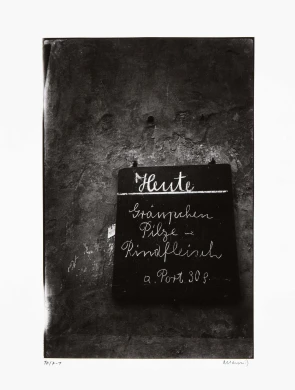 Heute
Gräupchen
Pilze -
Rindfleisch
a. Port. 30